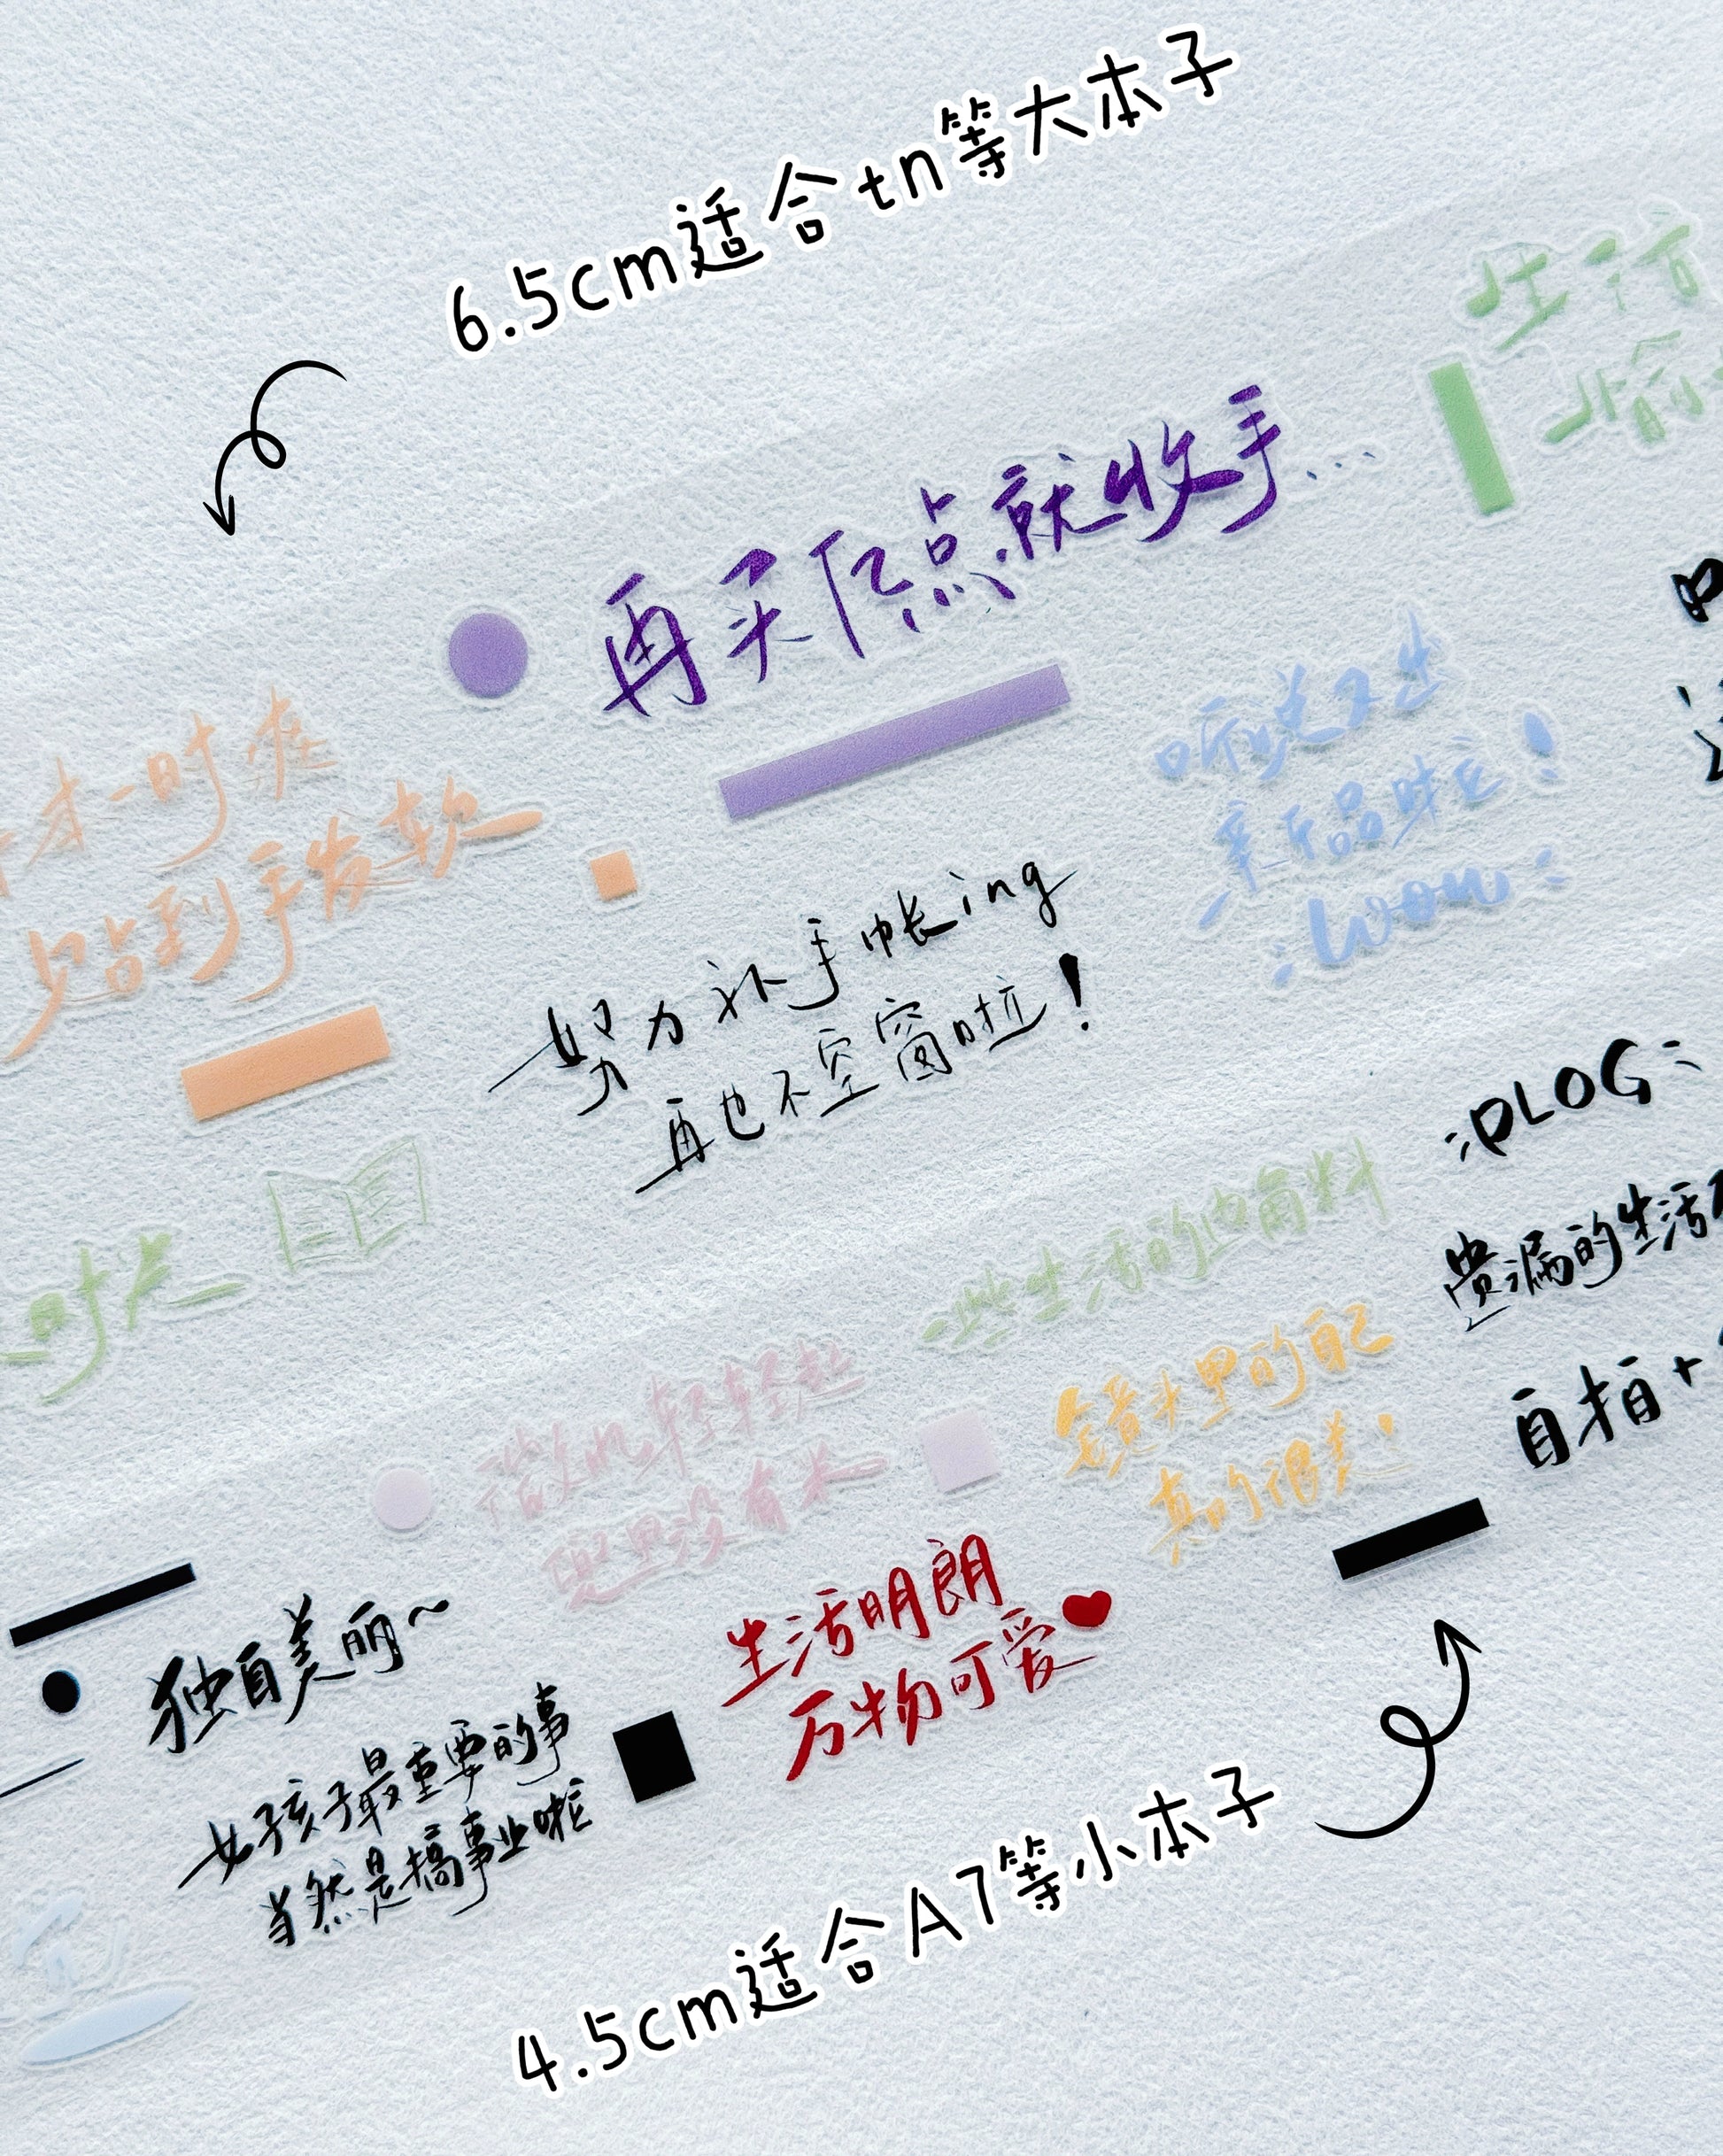 6.5cm适合tn等大本子
生活
愉
再买亿点就收手...
一时爽
贴到手发软
听说又出
新品啦
Wow
努力补手帐ing
再也不空窗啦！
时光
PLOG
贵漏的生活
自拍+
一些生活的边角料
镜头里的自己
真的很美！
轻轻起
兜里没有米
独自美丽~
女孩子最重要的事
当然是搞事业啦
生活明朗
万物可爱
4.5cm适合A7等小本子